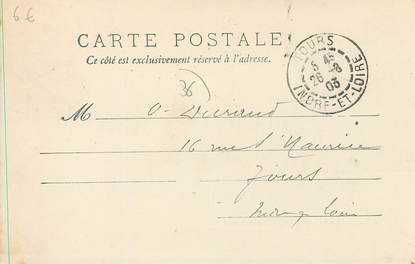 6 €
CARTE POSTALE
Ce côté est exclusivement réservé à l'adresse.
TOURS
26
03
INDRE-ET-LOIRE
36
M Durand
16 rue
Tours
Loire